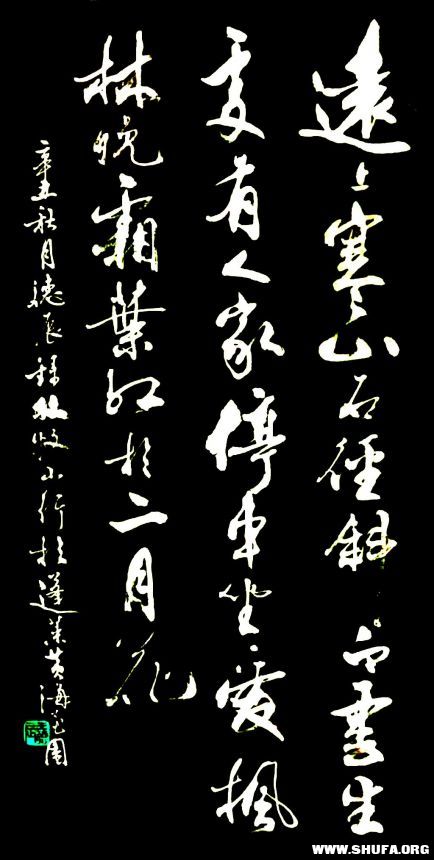 遠上寒山石徑斜白雲生
處有人家停車坐愛楓
林晚霜葉紅於二月花
辛丑秋月錄杜牧山行於蓬萊黄海花園
WWW.SHUFA.ORG